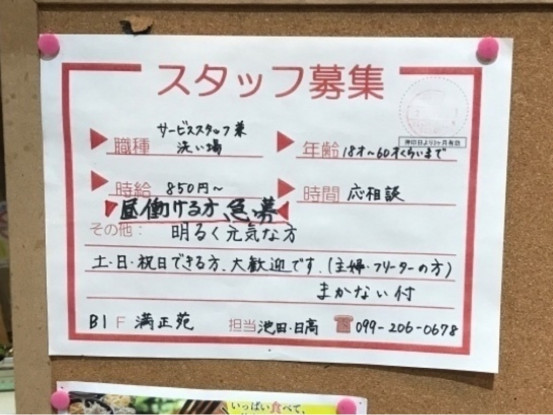 スタッフ募集
職種 サービススタッフ兼
洗い場
年齢 18才~60才くらいまで
捺印日より1ヶ月有効
時給 850円~
時間 応相談
昼働ける方、急募
その他: 明るく元気な方
土・日・祝日できる方、大歓迎です。(主婦・フリーターの方)
まかない付
B1F 満正苑 担当 池田・日高 ☎099-206-0678
いっぱい食べて、